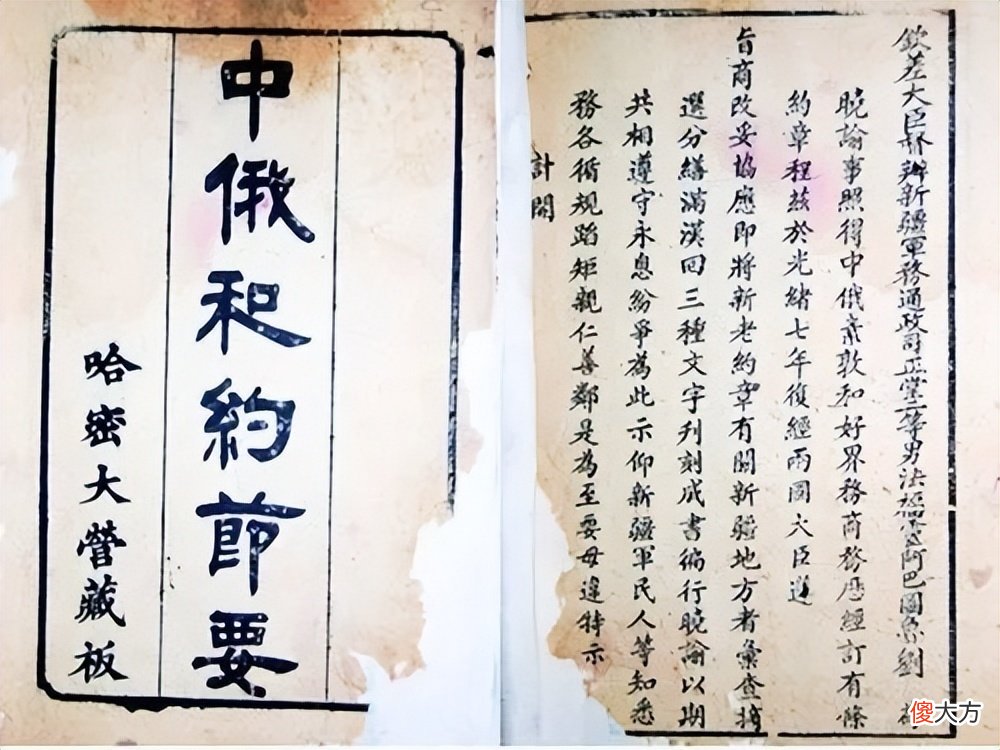 中俄和約節要
哈密大營藏板
欽差大臣督辦新疆軍務通政司正堂二等男法福靈阿巴圖魯劉 為
曉諭事照得中俄素敦和好界務商務歷經訂有條
約章程茲於光緒七年復經兩國大臣遵
旨商改妥協應即將新老約章有關新疆地方者彙查摘
選分繕滿漢回三種文字刊刻成書徧行曉諭以期
共相遵守永息紛爭為此示仰新疆軍民人等知悉
務各循規蹈矩親仁善鄰是為至要毋違特示
計開
傻大方